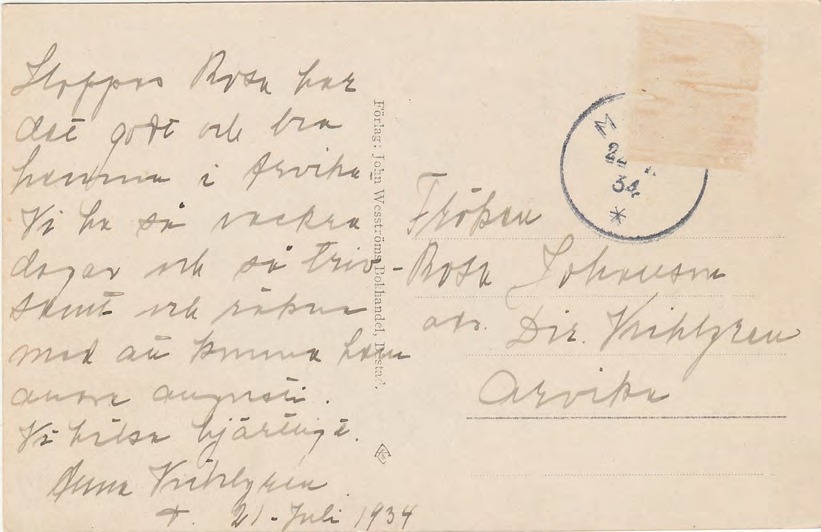 Hoppas Rosa har
det godt och bra
hemma i Arvika
Vi ha så vackra
dagar och så triv-
samt och räkna
med att komma hem
andra augusti.
Vi hälsa hjärtligt.
Anna Kihlgren
21-Juli 1934
Förlag: John Wesströms Bokhandel,
M
34
Fröken
Rosa Johanson
adr. Dir. Kihlgren
Arvika